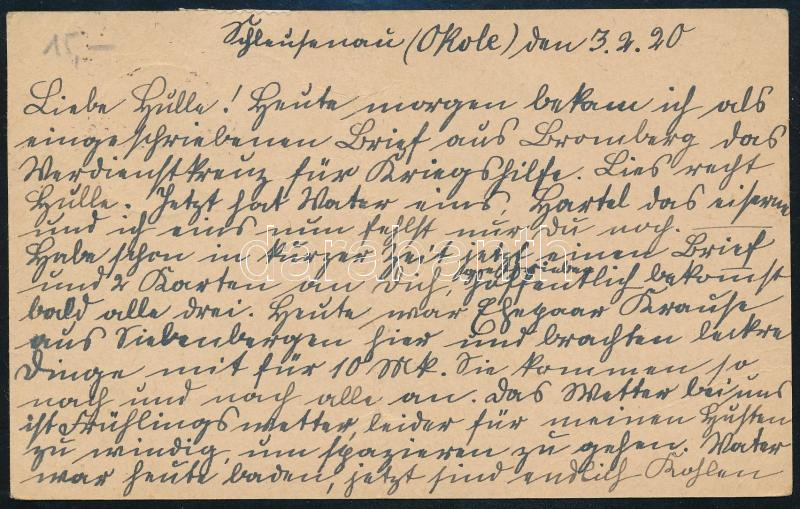 15,-
Schleusenau (Okole) den 3.2.20
Liebe Hulle! Heute morgen bekam ich als
eingeschriebenen Brief aus Bromberg das
Verdienstkreuz für Kriegshilfe. Lies recht
Hulle. Jetzt hat Vater eins Hartel das eiserne
und ich eins nun fehlst nur du noch.
Habe schon in kurzer Zeit jetzt einen Brief
und 2 Karten an Dich, hoffentlich bekommst
bald alle drei. Heute war Ehepaar Krause
aus Siebenbergen hier und brachten leckre
Dinge mit für 10 Mk. Sie kommen so
nach und nach alle an. Das Wetter bei uns
ist Frühlingswetter, leider für meinen Husten
zu windig, um spazieren zu gehen. Vater
war heute baden, jetzt sind endlich Kohlen
darabanth.com